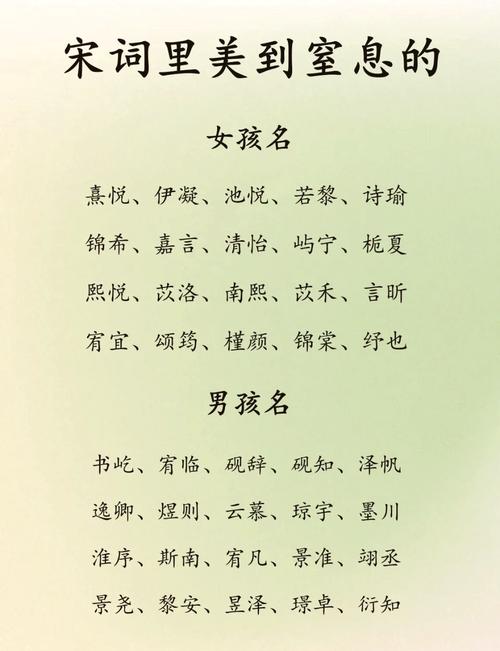 宋词里美到窒息的
女孩名
熹悦、伊凝、池悦、若黎、诗瑜
锦希、嘉言、清怡、屿宁、栀夏
熙悦、苡洛、南熙、苡禾、言昕
宥宜、颂筠、槿颜、锦棠、纾也
男孩名
书屹、宥临、砚辞、砚知、泽帆
逸卿、煜则、云慕、琼宇、墨川
淮序、斯南、宥凡、景准、翊丞
景尧、黎安、昱泽、璟卓、衍知